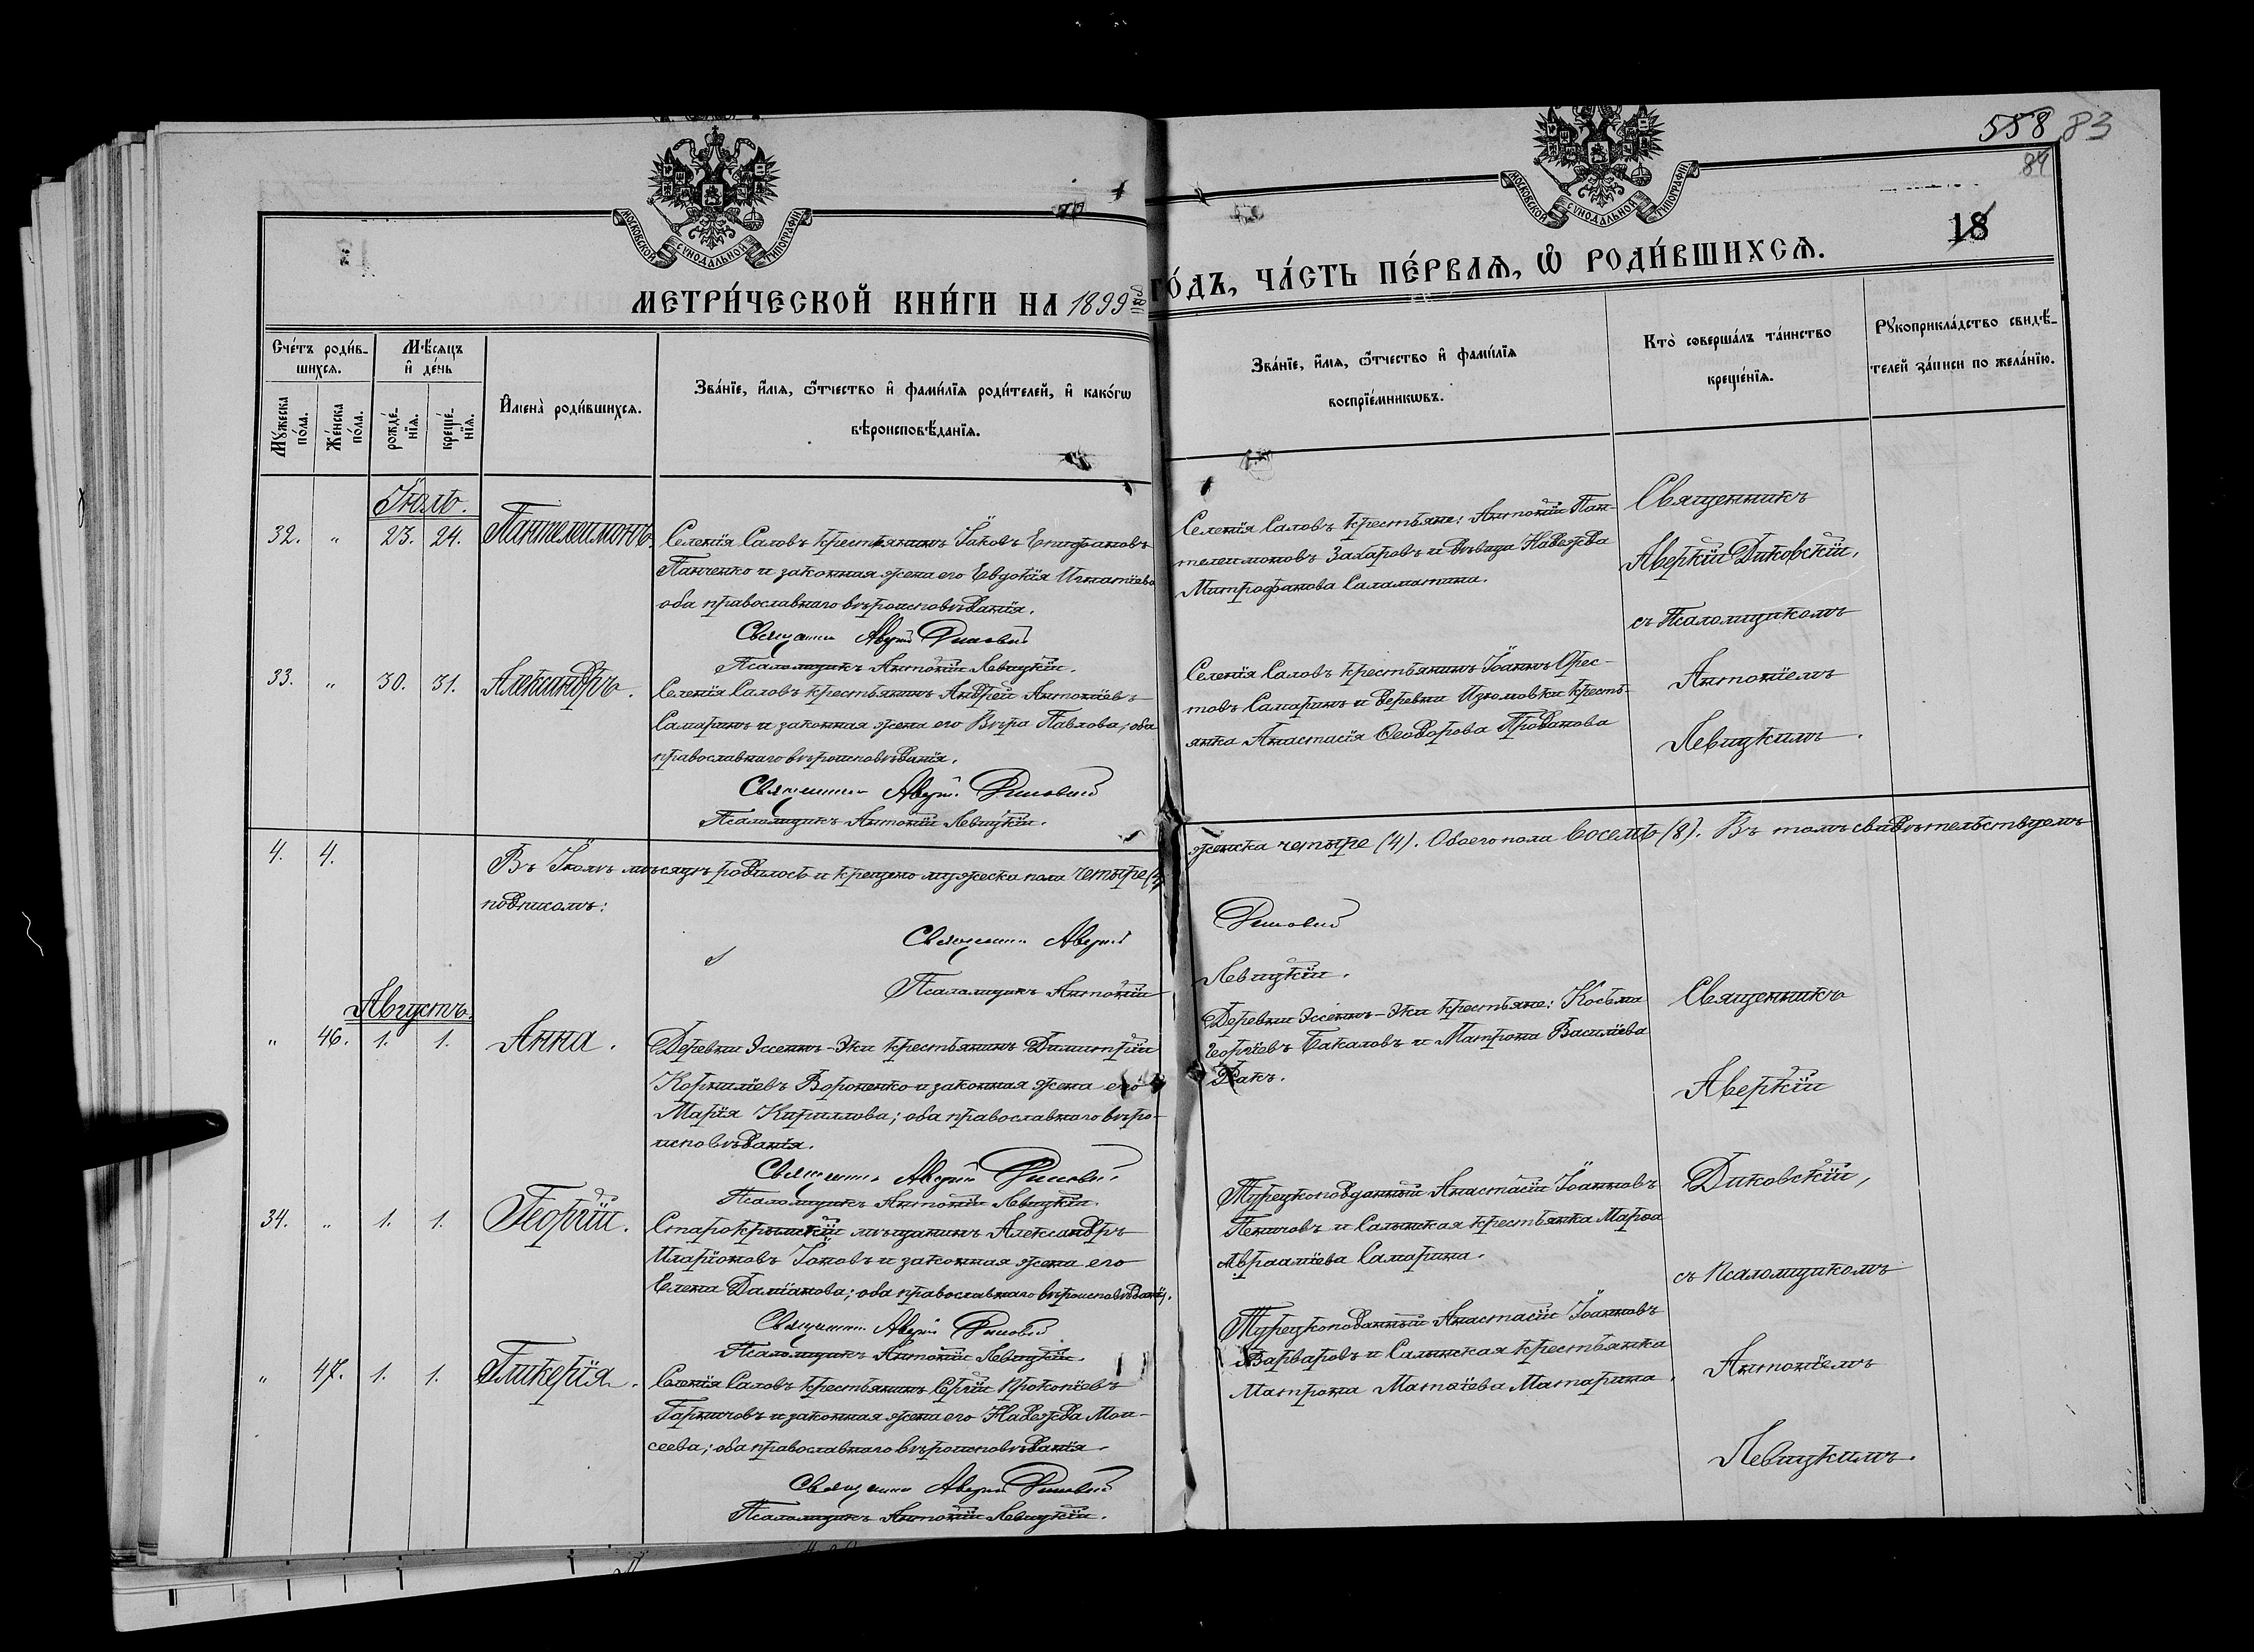 558 83
84
18
МОСКОВСКОЙ СѴНОДАЛЬНОЙ ТИПОГРАФІИ
МОСКОВСКОЙ СѴНОДАЛЬНОЙ ТИПОГРАФІИ
МЕТРИ́ЧЕСКОЙ КНИ́ГИ НА 1899й ГО́ДЪ, ЧА́СТЬ ПЕ́РВАѦ, Ѽ РОДИ́ВШИХСѦ.
Сче́тъ роди́в-
шихсѧ.
Мꙋ́жеска
по́ла.
Же́нска
по́ла.
Мѣ́сяцъ
и҆ де́нь
рожде́-
нїѧ.
креще́-
нїѧ.
И҆мена̀ роди́вшихсѧ.
Зва́нїе, и҆́мѧ, ѻ҆́тчество и҆ фами́лїѧ роди́телей, и҆ како́гѡ
вѣроисповѣ́данїѧ.
Зва́нїе, и҆́мѧ, ѻ҆́тчество и҆ фами́лїѧ
воспрїе́мникѡвъ.
Кто̀ соверша́лъ та́инство
креще́нїѧ.
Рꙋкоприкла́дство свидѣ́-
телей за́писи по жела́нїю.
Іюль.
32. " 23. 24. Пантелеимонъ.
Селенія Саловъ крестьянинъ Іаковъ Епифановъ
Панченко и законная жена его Евдокія Игнатіева
оба православнаго вѣроисповѣданія.
Священникъ Аверкій Диковскій
Псаломщикъ Антоній Левицкій.
Селенія Саловъ крестьяне: Антоній Пан-
телеимоновъ Захаровъ и дѣвица Надежда
Митрофанова Саламатина.
Священникъ
Аверкій Диковскій,
съ Псаломщикомъ
Антоніемъ
Левицкимъ.
33. " 30. 31. Александръ.
Селенія Саловъ крестьянинъ Андрей Антоніевъ
Самаринъ и законная жена его Вѣра Павлова; оба
православнаго вѣроисповѣданія.
Священникъ Аверкій Диковскій
Псаломщикъ Антоній Левицкій.
Селенія Саловъ крестьянинъ Іоаннъ Орес-
товъ Самаринъ и деревни Изюмовки кресть-
янка Анастасія Ѳеодорова Проданова
4. 4.
Въ Іюлѣ мѣсяцѣ родилось и крещено мужеска пола четыре (4)
женска четыре (4). Обоего пола восемь (8). Въ томъ свидѣтельствуемъ
подписомъ:
Священникъ Аверкій Диковскій
Псаломщикъ Антоній Левицкій.
Августъ.
" 46. 1. 1. Анна.
Деревни Эссенъ-Эки крестьянинъ Димитрій
Корниліевъ Вороненко и законная жена его
Марія Кириллова; оба православнаго вѣро-
исповѣданія.
Священникъ Аверкій Диковскій
Псаломщикъ Антоній Левицкій.
Деревни Эссенъ-Эки крестьяне: Косьма
Георгіевъ Бакаловъ и Матрона Василіева
Священникъ
Аверкій
Диковскій,
съ Псаломщикомъ
Антоніемъ
Левицкимъ.
34. " 1. 1. Георгій.
Старокрымскій мѣщанинъ Александръ
Иларіоновъ Іоновъ и законная жена его
Елена Даміанова; оба православнаго вѣроисповѣданія.
Священникъ Аверкій Диковскій
Псаломщикъ Антоній Левицкій.
Турецкоподданный Анастасій Іоанновъ
Пеничовъ и Салынская крестьянка Марѳа
Авраамiева Самарина.
" 47. 1. 1. Гликерія.
Селенія Саловъ крестьянинъ Сергій Прокопіевъ
Горничовъ и законная жена его Надежда Мои-
сеева; оба православнаго вѣроисповѣданія.
Священникъ Аверкій Диковскій
Псаломщикъ Антоній Левицкій.
Турецкоподанный Анастасій Іоанновъ
Варваровъ и Салынская крестьянка
Матрона Матѳіева Матарина.